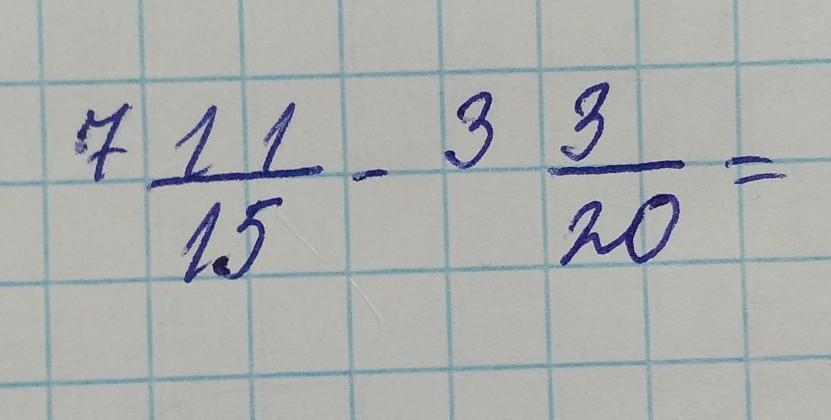 7 11/15 - 3 3/20 =